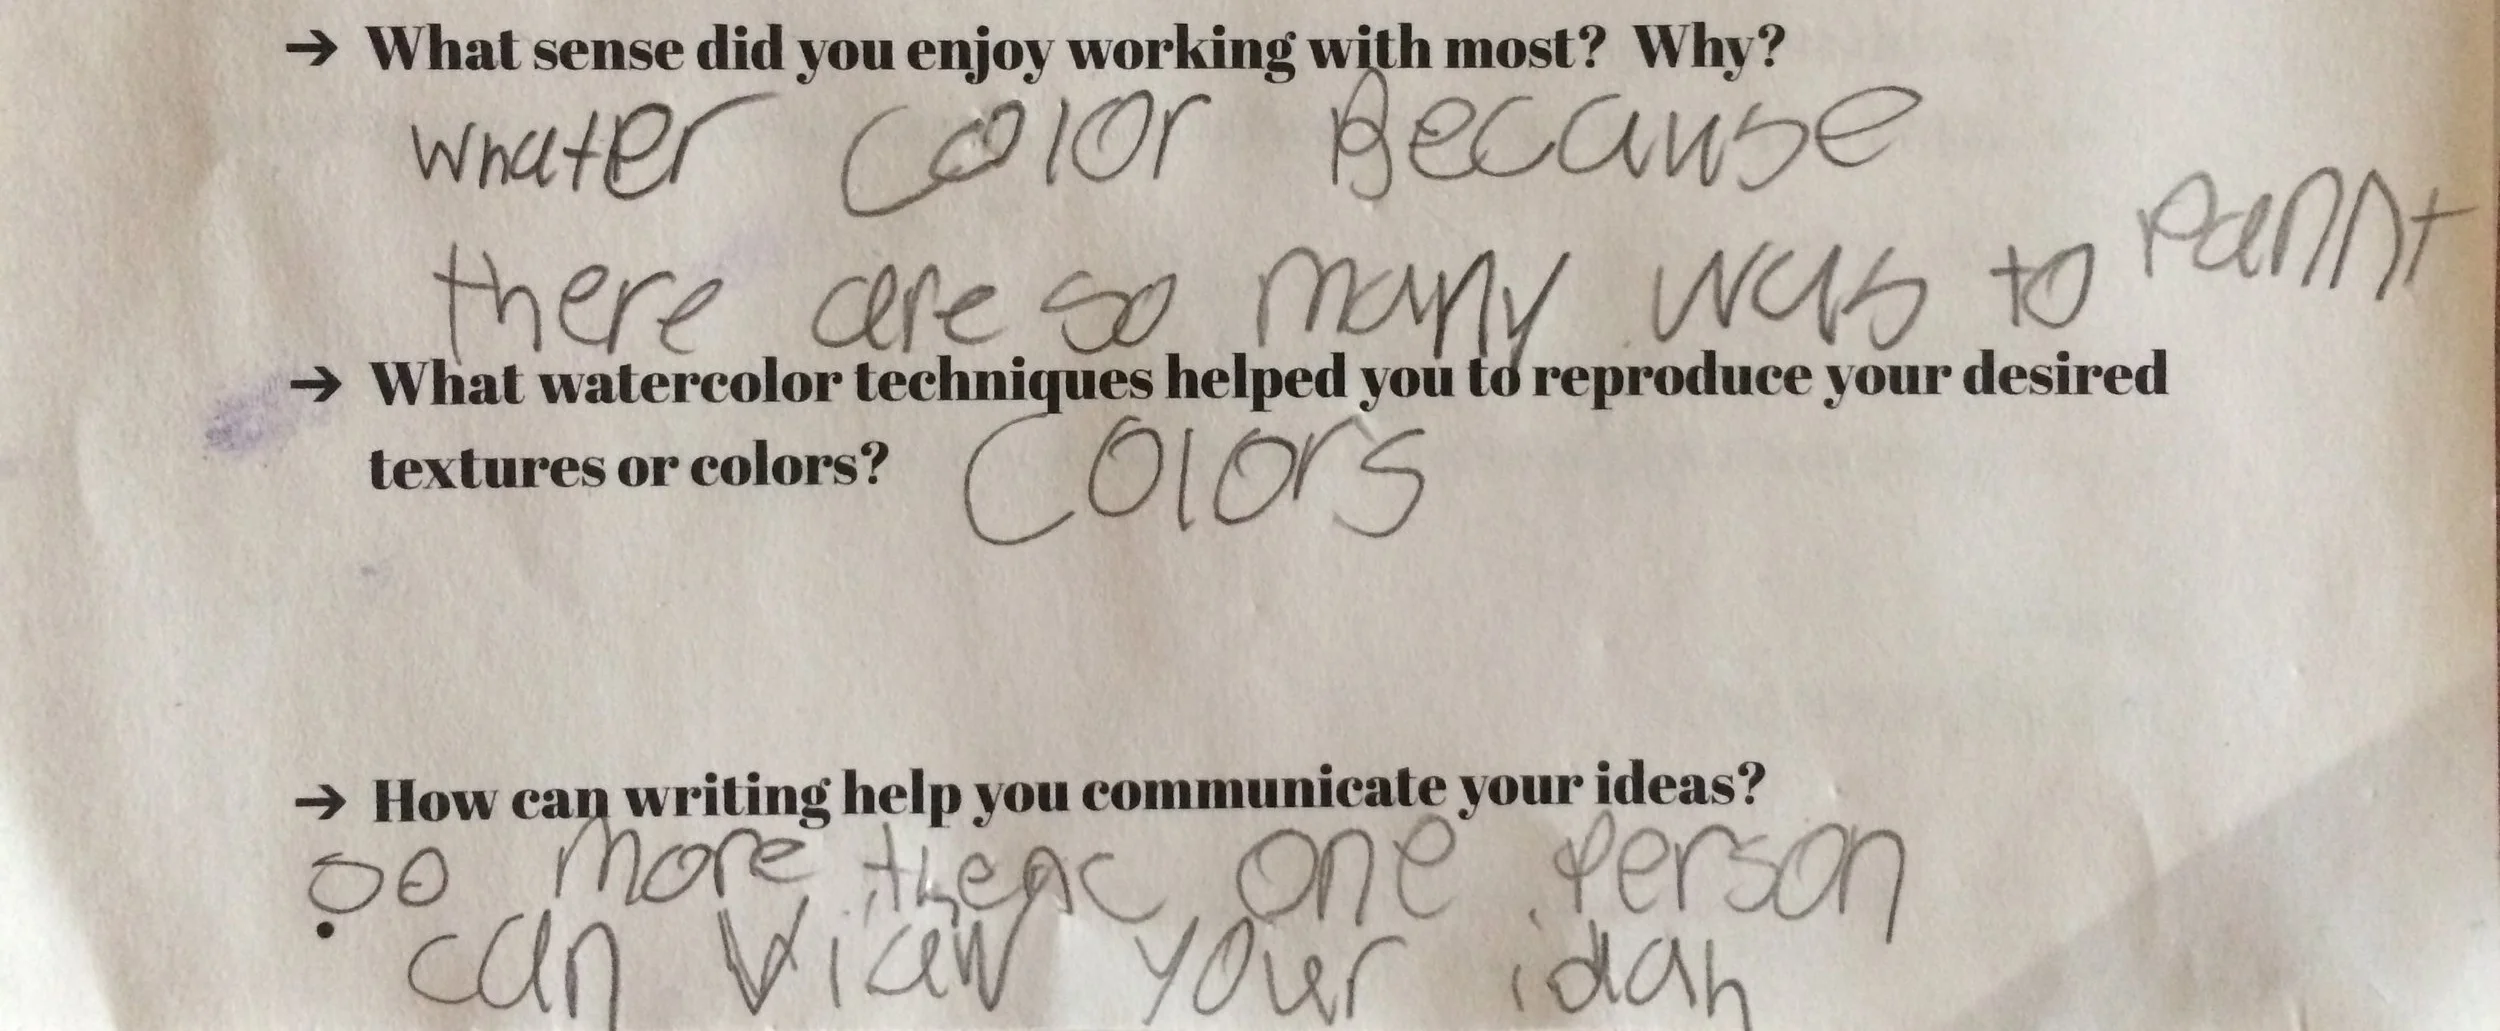 → What sense did you enjoy working with most? Why?
Whater Color Because
there are so many ways to pannt
→ What watercolor techniques helped you to reproduce your desired
textures or colors? Colors
→ How can writing help you communicate your ideas?
so more one person
can view your idah